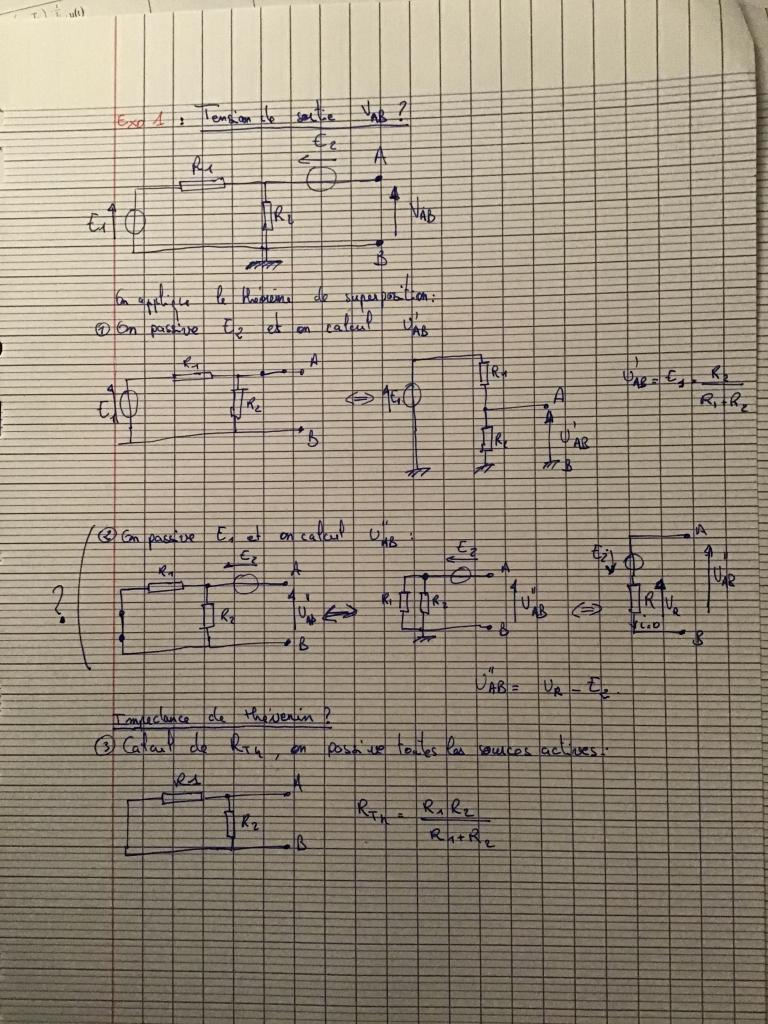 Exo 1 : Tension de sortie VAB ?
E2
A
R1
E1
R2
VAB
B
On applique le théorème de superposition:
① On passive E2 et on calcul U'AB
R1
A
E1
R2
B
⇔
E1
R1
A
R2
U'AB
B
U'AB = E1 . R2 / R1+R2
② On passive E1 et on calcul U''AB :
?
R1
E2
A
R2
U''AB
B
⇔
E2
A
R1
R2
U''AB
B
⇔
A
E2
R
UR
i=0
U''AB
B
U''AB = UR - E2.
Impedance de thévenin ?
③ Calcul de RTh, on passive toutes les sources actives:
R1
A
R2
B
RTh = R1 R2 / R1+R2